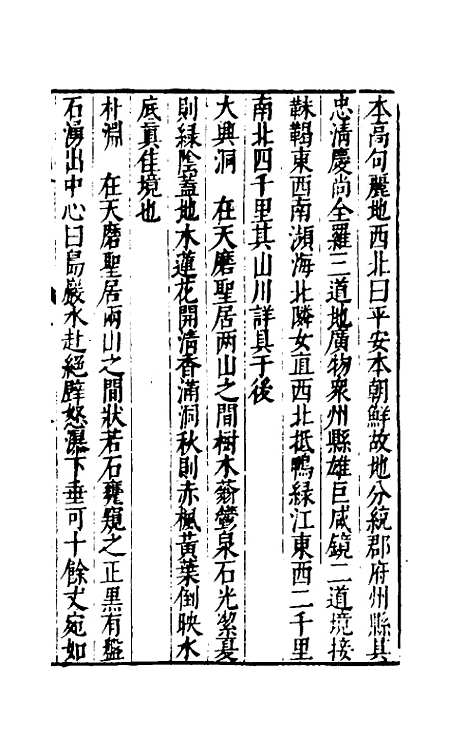 本高句麗地西北曰平安本朝鮮故地分統郡府州縣其
忠清慶尚全羅三道地廣物衆州縣雄巨咸鏡二道境接
靺鞨東西南瀕海北隣女直西北抵鴨緑江東西二千里
南北四千里其山川詳具于後
大興洞　在天磨聖居两山之間樹木蓊鬱泉石光潔夏
則緑陰蓋地木蓮花開清香滿洞秋則赤楓黃葉倒映水
底真佳境也
朴淵　在天磨聖居兩山之間狀若石甕窺之正黒有盤
石湧出中心曰島巖水赴絕壁怒瀑下垂可十餘丈宛如